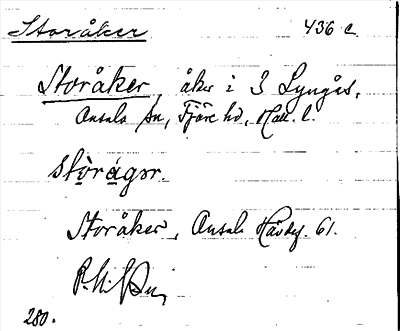 Storåker 436 c.
Storåker, åker i 3 Lyngås,
Onsala sn, Fjäre hd, Hall. l.
stòrágər.
Storåker, Onsala Hävdeg. 61.
280.